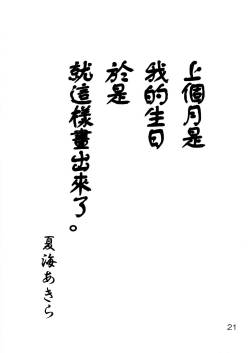 上個月是
我的生日
於是
就這樣畫出來了。
夏海あきら
21